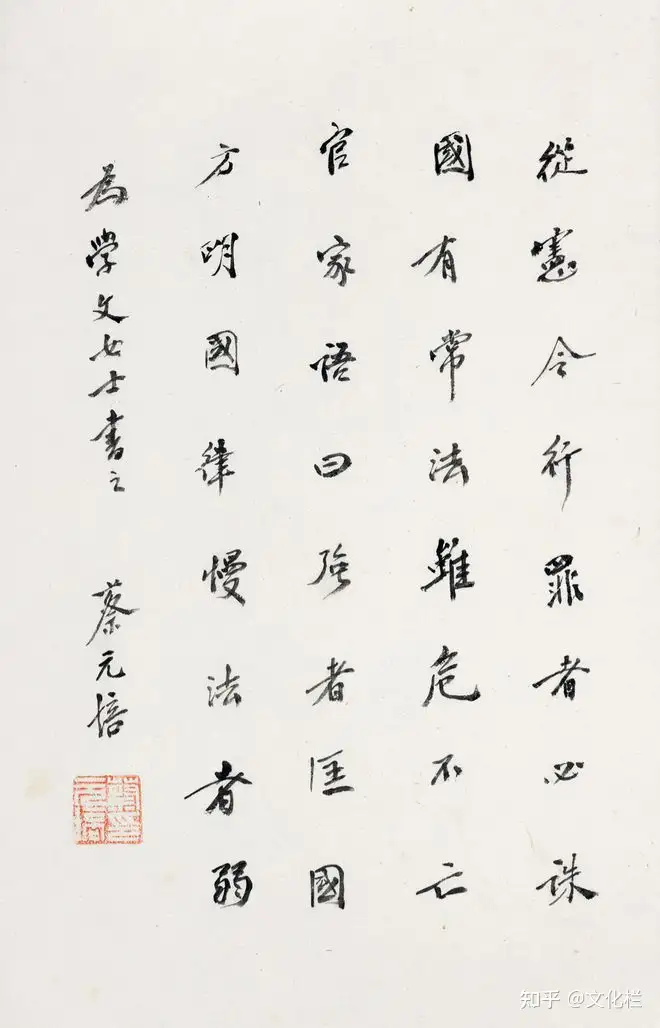 從憲令行罪者必誅
國有常法雖危不亡
官家語曰強者匡國
方明國律慢法者弱
為學文女士書之 蔡元培
知乎 @文化栏